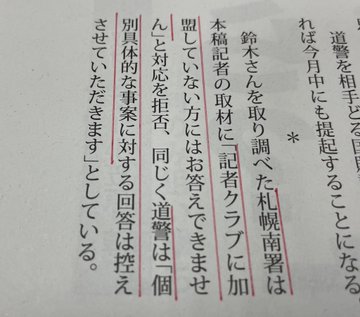 道警を相手どる国
れば今月中にも提起することになる
＊
鈴木さんを取り調べた札幌南署は
本稿記者の取材に「記者クラブに加
盟していない方にはお答えできませ
ん」と対応を拒否、同じく道警は「個
別具体的な事案に対する回答は控え
させていただきます」としている。